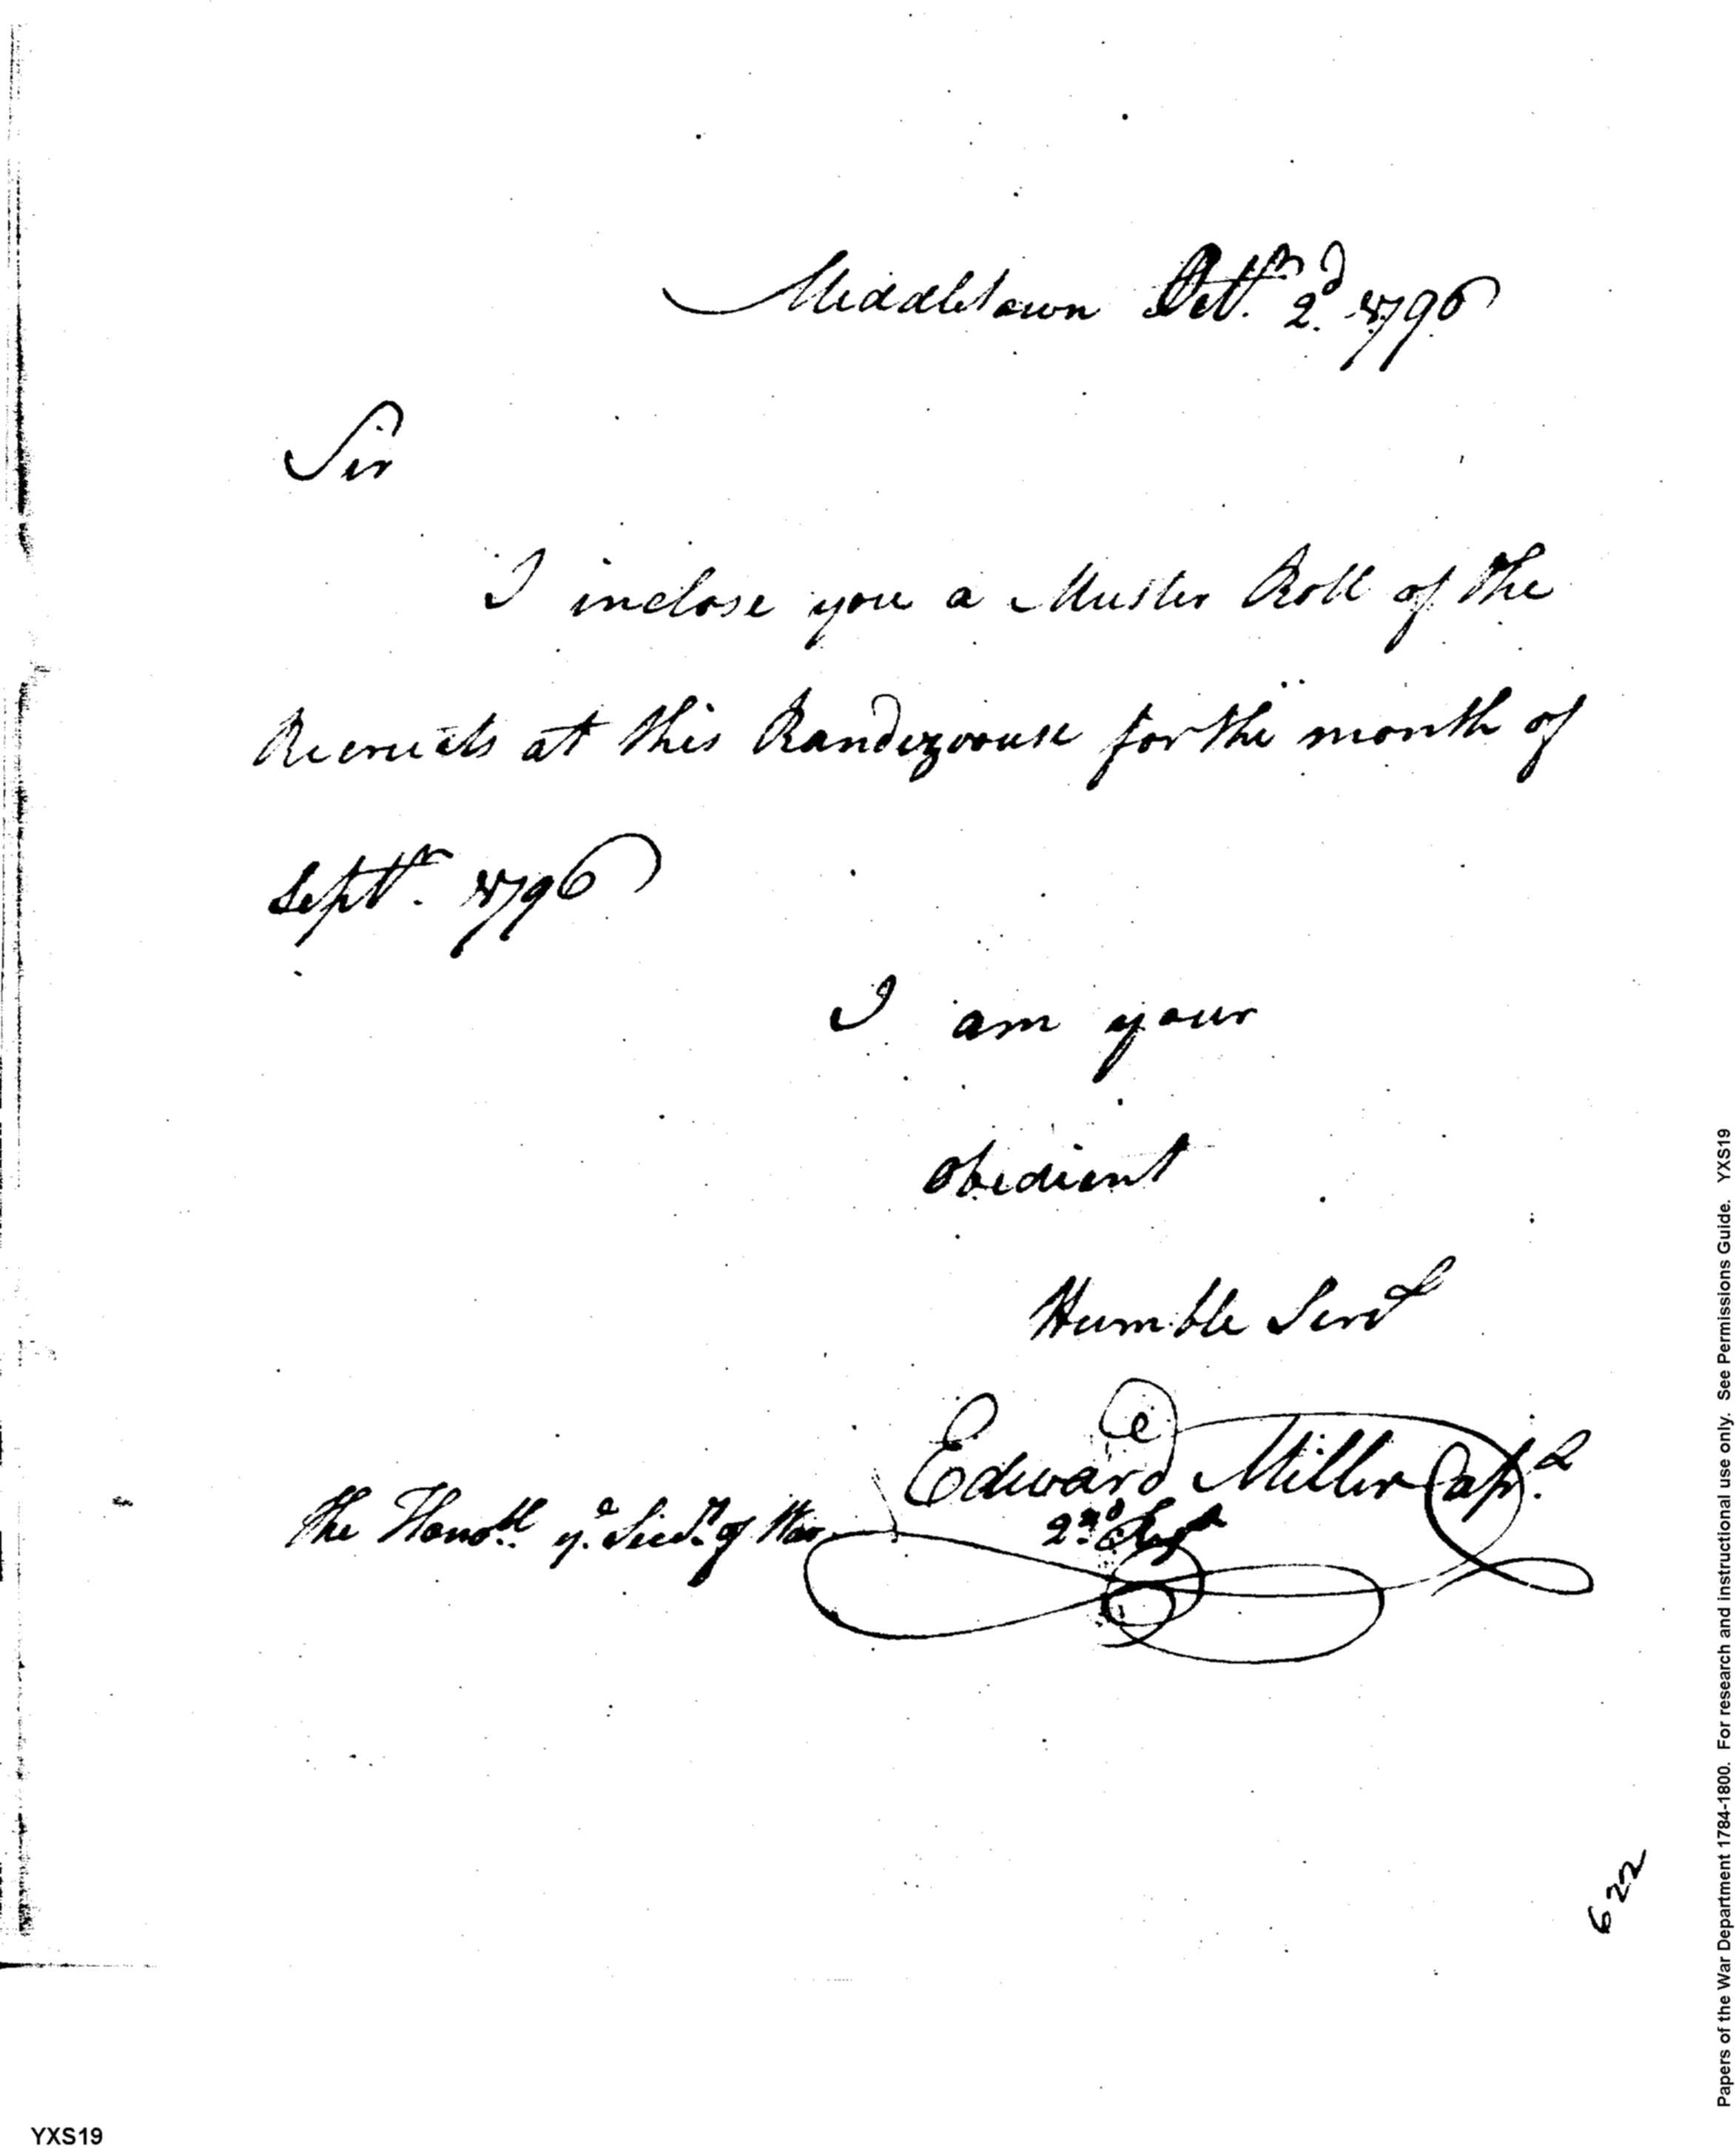 Middletown Octr. 2d. 1796
Sir
I inclose you a Muster Roll of the
Recruits at this Randezvouse for the month of
Septr. 1796
I am your
obedient
Humble Servt
Edward Miller Capt.
2nd Regt
the Honobl. ye. Secry. of War
622
Papers of the War Department 1784-1800. For research and instructional use only. See Permissions Guide. YXS19
YXS19